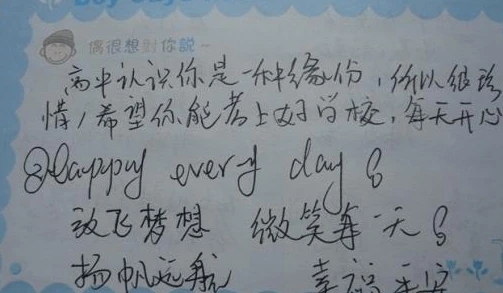 偶很想對你說~
高中认识你是一种缘份，所以很珍
惜，希望你能考上好学校，每天开心
Happy every day
放飞梦想 微笑每一天
扬帆远航 幸福平安